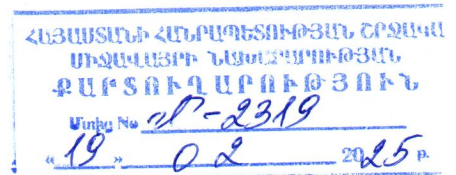 ՀԱՅԱՍՏԱՆԻ ՀԱՆՐԱՊԵՏՈՒԹՅԱՆ ՇՐՋԱԿԱ
ՄԻՋԱՎԱՅՐԻ ՆԱԽԱՐԱՐՈՒԹՅԱՆ
ՔԱՐՏՈՒՂԱՐՈՒԹՅՈՒՆ
Մտից № Դ-2319
«19» 02 2025 թ.